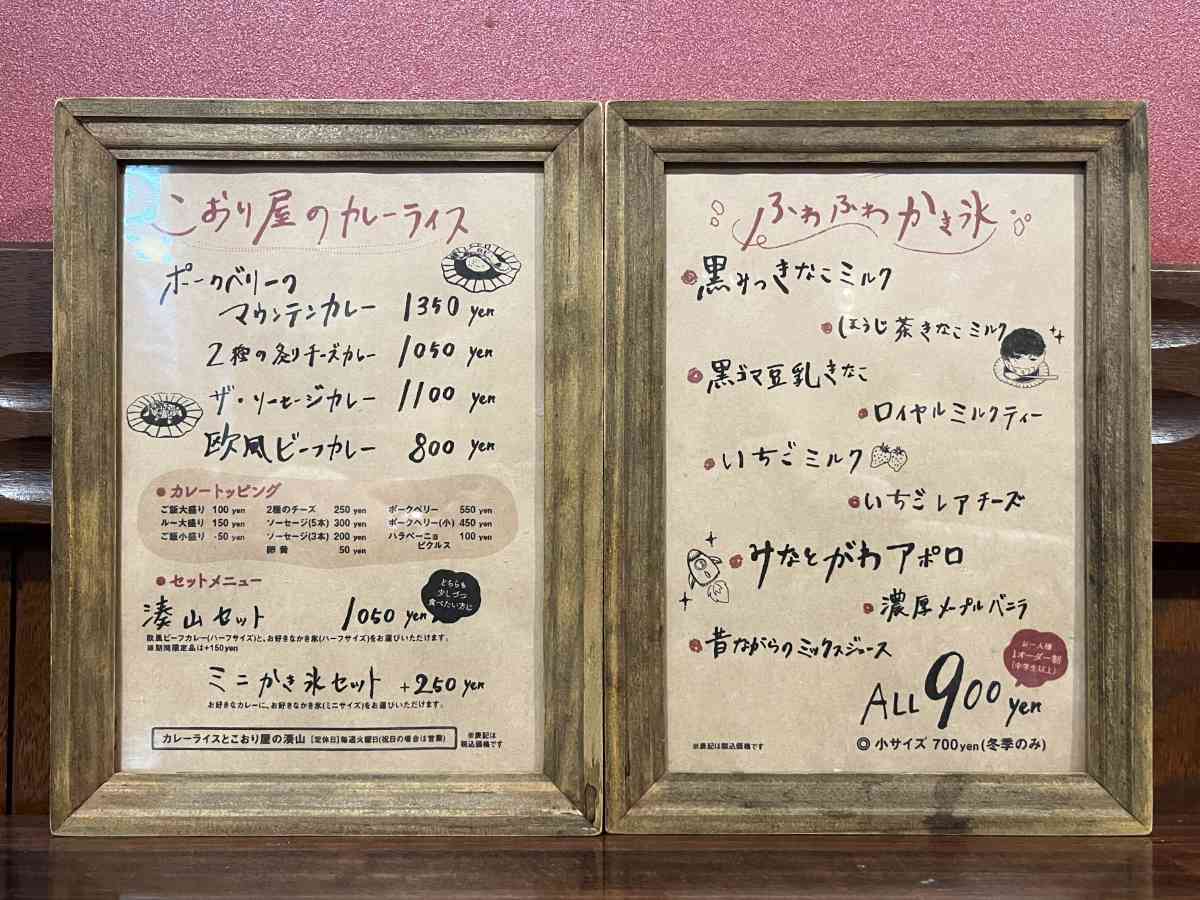 こおり屋のカレーライス
ポークベリーの
マウンテンカレー 1350 yen
2種の炙りチーズカレー 1050 yen
ザ・ソーセージカレー 1100 yen
欧風ビーフカレー 800 yen
カレートッピング
ご飯大盛り 100 yen 2種のチーズ 250 yen ポークベリー 550 yen
ルー大盛り 150 yen ソーセージ(5本) 300 yen ポークベリー(小) 450 yen
ご飯小盛り -50 yen ソーセージ(3本) 200 yen ハラペーニョ 100 yen
卵黄 50 yen ピクルス
セットメニュー
どちらも
少しづつ
食べたい方に
湊山セット 1050 yen
欧風ビーフカレー(ハーフサイズ)と、お好きなかき氷(ハーフサイズ)をお選びいただけます。
※期間限定品は+150yen
ミニかき氷セット +250 yen
お好きなカレーに、お好きなかき氷(ミニサイズ)をお選びいただけます。
カレーライスとこおり屋の湊山 [定休日]毎週火曜日(祝日の場合は営業)
※表記は
税込価格です
ふわふわかき氷
黒みつきなこミルク
ほうじ茶きなこミルク
黒ゴマ豆乳きなこ
ロイヤルミルクティー
いちごミルク
いちごレアチーズ
みなとがわアポロ
濃厚メープルバニラ
昔ながらのミックスジュース
お一人様
1オーダー制
(中学生以上)
ALL 900 yen
※表記は税込価格です
◎ 小サイズ 700yen(冬季のみ)